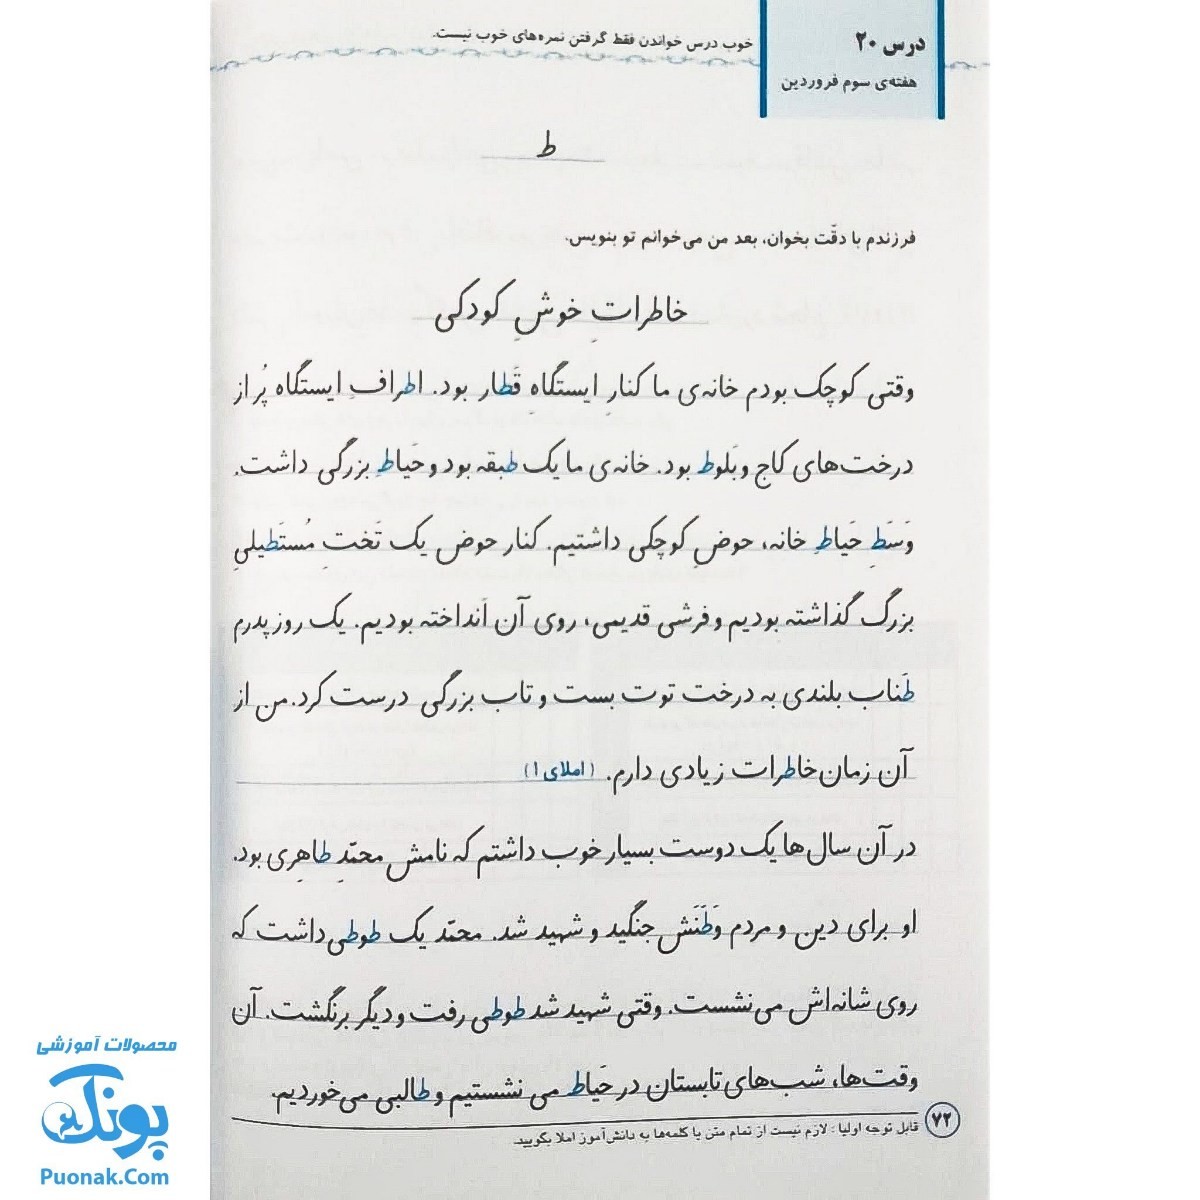 درس ۲۰
هفته‌ی سوم فروردین
خوب درس خواندن فقط گرفتن نمره‌های خوب نیست.
ط
فرزندم با دقّت بخوان، بعد من می‌خوانم تو بنویس.
خاطراتِ خوشِ کودکی
وقتی کوچک بودم خانه‌ی ما کنارِ ایستگاهِ قَطار بود. اطرافِ ایستگاه پُر از
درخت‌های کاج و بَلوط بود. خانه‌ی ما یک طبقه بود و حَیاطِ بزرگی داشت.
وَسَطِ حَیاطِ خانه، حوضِ کوچکی داشتیم. کنار حوض یک تَختِ مُستَطیلیِ
بزرگ گذاشته بودیم و فرشی قدیمی، روی آن اَنداخته بودیم. یک روز پدرم
طَناب بلندی به درخت توت بست و تاب بزرگی درست کرد. من از
آن زمان خاطرات زیادی دارم. (املای ۱)
در آن سال‌ها یک دوست بسیار خوب داشتم که نامش محمّدِ طاهِری بود.
او برای دین و مردم وَطَنَش جنگید و شهید شد. محمّد یک طوطی داشت که
روی شانه‌اش می‌نشست. وقتی شهید شد طوطی رفت و دیگر برنگشت. آن
وقت‌ها، شب‌های تابستان در حَیاط می نشستیم و طالبی می‌خوردیم.
۷۲
قابل توجه اولیا: لازم نیست از تمام متن یا کلمه‌ها به دانش‌آموز املا بگویید.
محصولات آموزشی
پونک
Puonak.Com